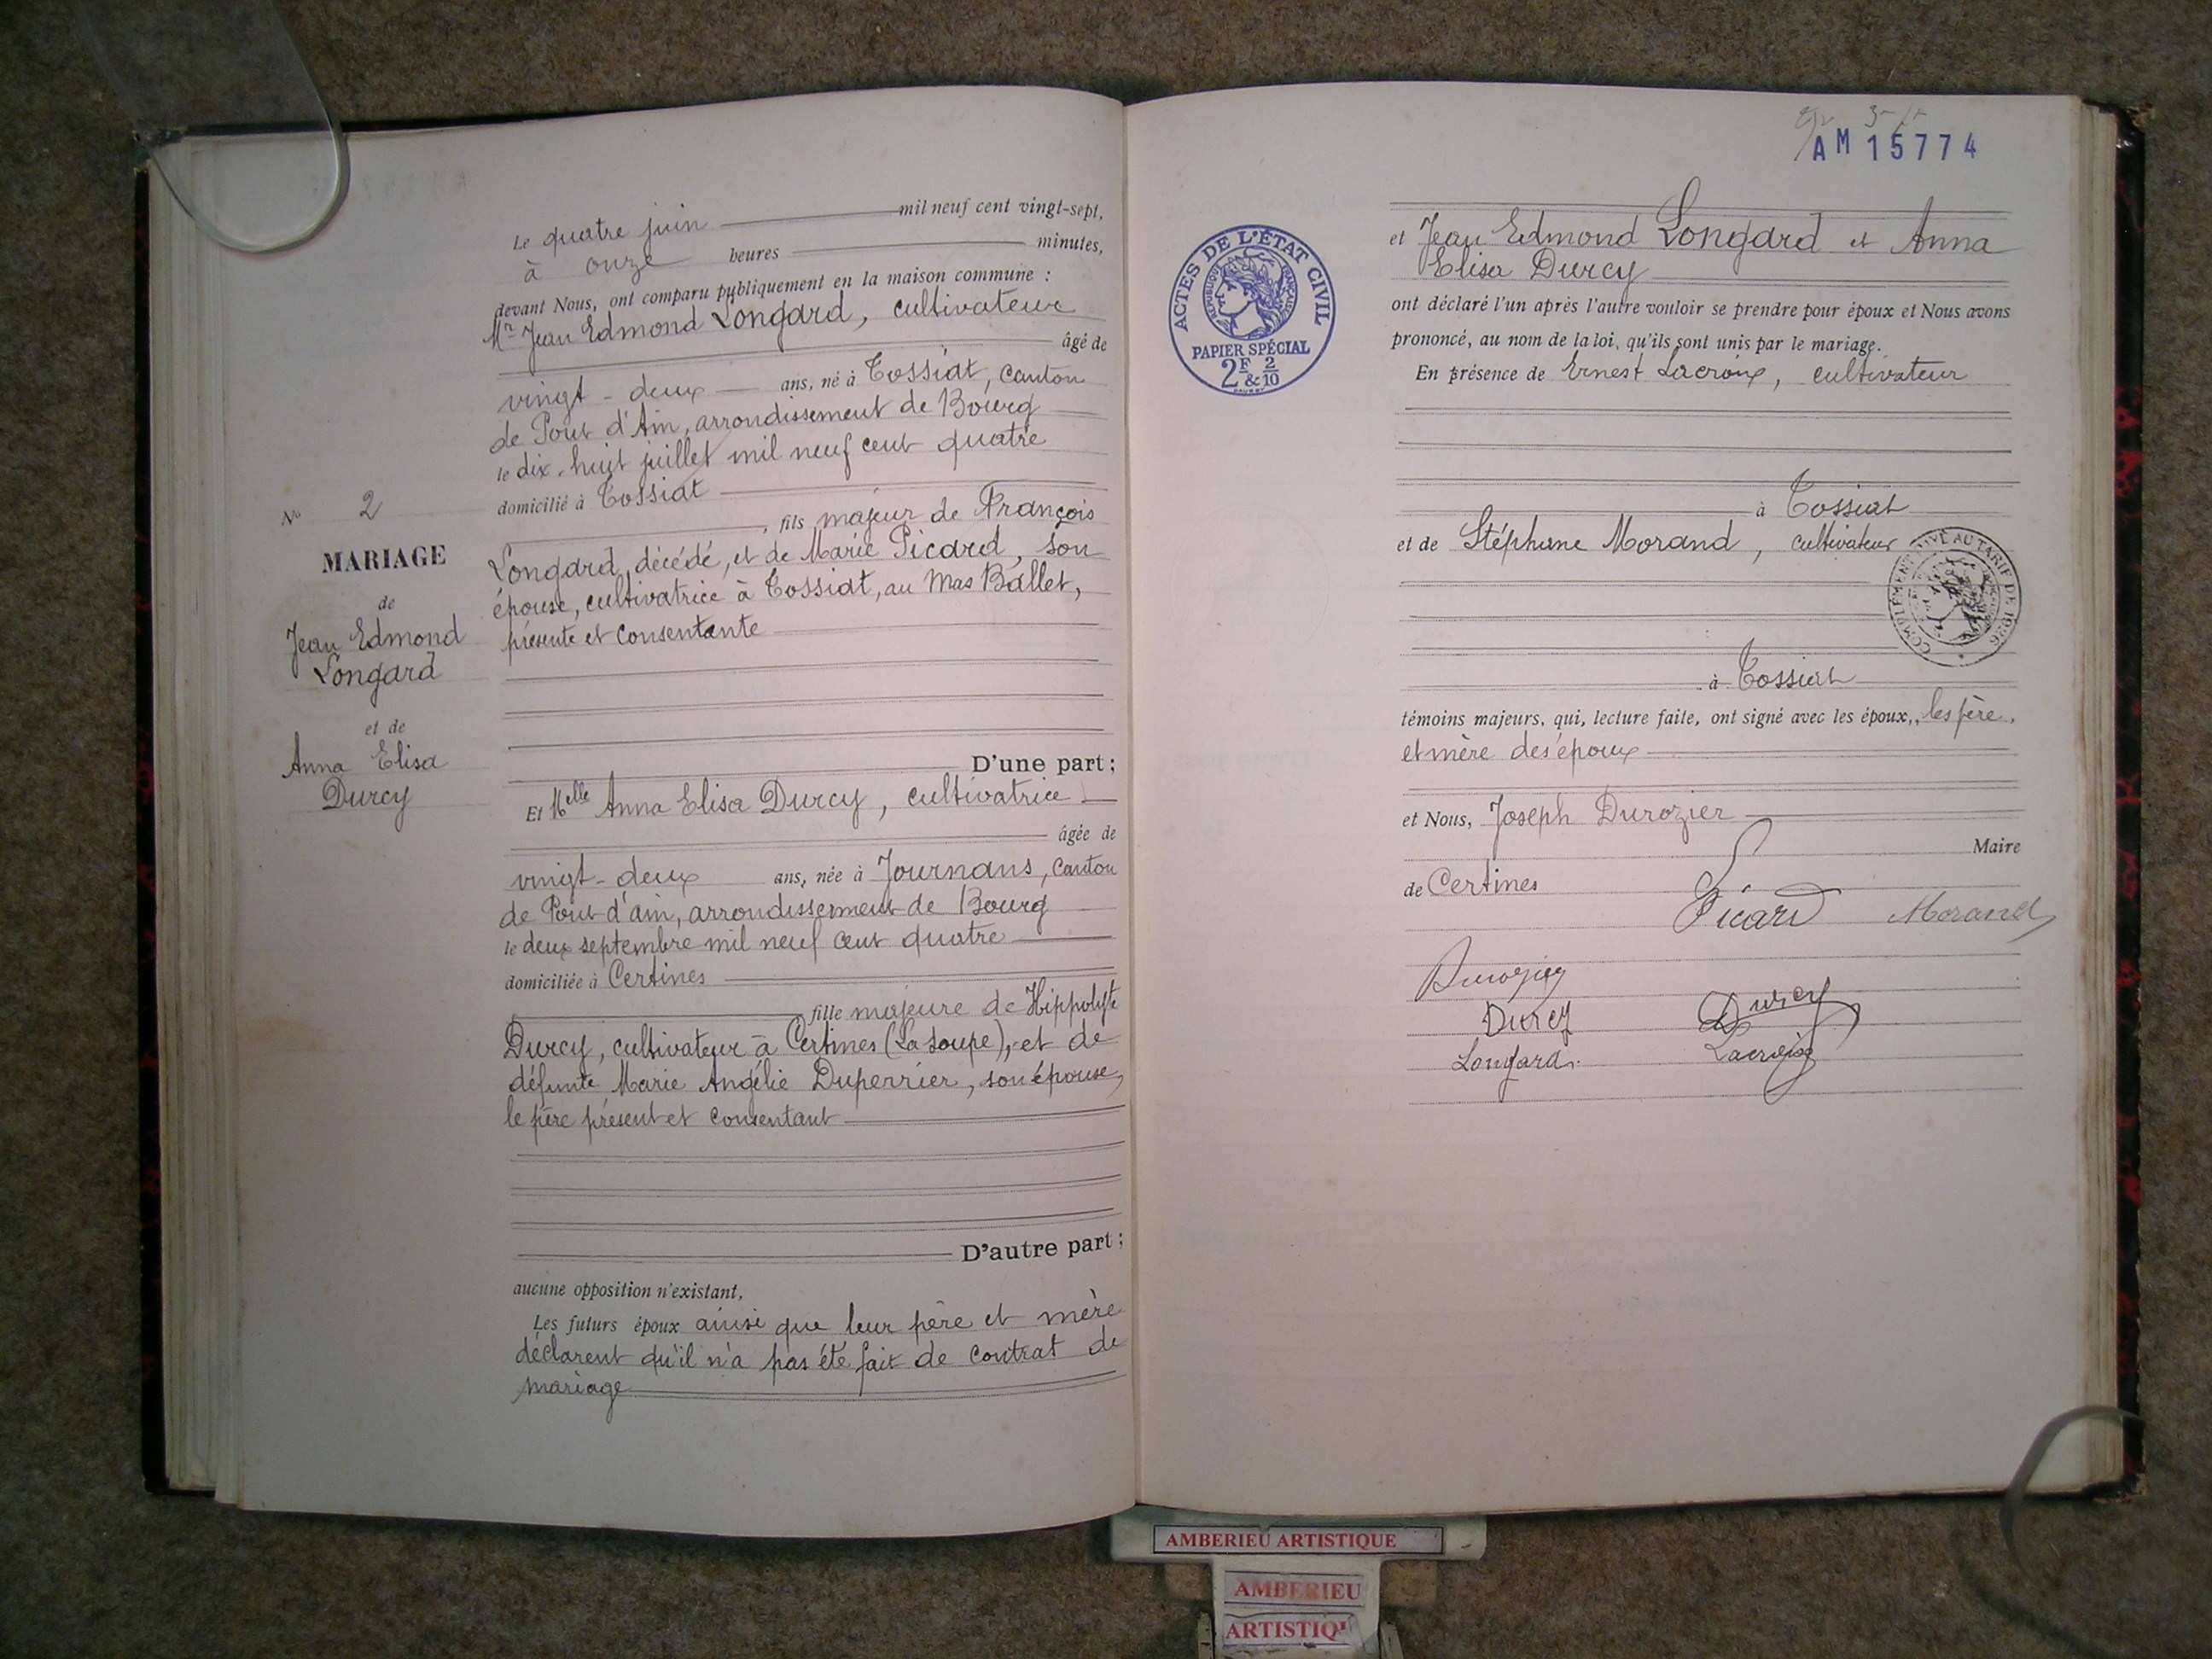 Le quatre juin mil neuf cent vingt-sept,
à onze heures minutes,
devant Nous, ont comparu publiquement en la maison commune :
Mr Jean Edmond Longard, cultivateur
âgé de
vingt-deux ans, né à Tossiat, canton
de Pont d'Ain, arrondissement de Bourg
le dix-huit juillet mil neuf cent quatre
domicilié à Tossiat
, fils majeur de François
Longard, décédé, et de Marie Picard, son
épouse, cultivatrice à Tossiat, au Mas Ballet,
présente et consentante
D'une part;
Et Melle Anna Elisa Durcy, cultivatrice
âgée de
vingt-deux ans, née à Journans, canton
de Pont d'ain, arrondissement de Bourg
le deux septembre mil neuf cent quatre
domiciliée à Certines
, fille majeure de Hippolyte
Durcy, cultivateur à Certines (La Soupe), et de
défunte Marie Angélie Duperrier, son épouse,
le père présent et consentant
D'autre part;
aucune opposition n'existant,
Les futurs époux ainsi que leur père et mère
déclarent qu'il n'a pas été fait de contrat de
mariage
No 2
MARIAGE
de
Jean Edmond
Longard
et de
Anna Elisa
Durcy
AM 15774
ACTES DE L'ÉTAT CIVIL
RÉPUBLIQUE FRANÇAISE
PAPIER SPÉCIAL
2F & 2/10
et Jean Edmond Longard et Anna
Elisa Durcy
ont déclaré l'un après l'autre vouloir se prendre pour époux et Nous avons
prononcé, au nom de la loi, qu'ils sont unis par le mariage.
En présence de Ernest Lacroix, cultivateur
à Tossiat
et de Stéphane Morand, cultivateur
à Tossiat
témoins majeurs, qui, lecture faite, ont signé avec les époux, les père,
et mère des époux
et Nous, Joseph Durozier
Maire
de Certines
Picard Morand
Durozier
Durcy Durcy
Longard Lacroix
AMBERIEU ARTISTIQUE
AMBERIEU
ARTISTIQU